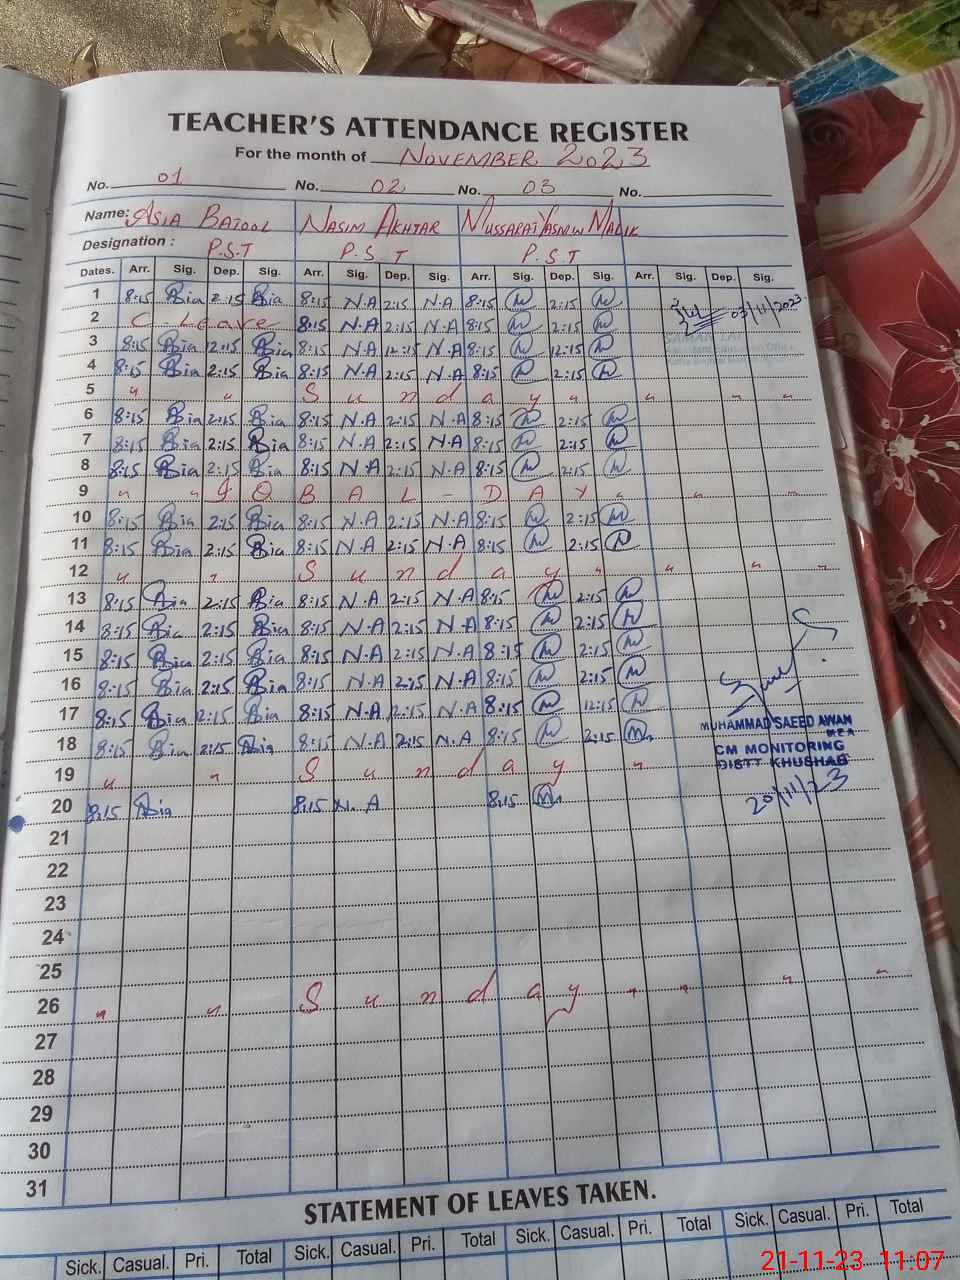 TEACHER'S ATTENDANCE REGISTER
For the month of NOVEMBER 2023
No. 01 No. 02 No. 03 No.
Name: ASIA BATOOL NASIM AKHTAR MUSSARAT YASMIN MALIK
Designation : P.S.T P.S.T P.S.T
Dates. Arr. Sig. Dep. Sig. Arr. Sig. Dep. Sig. Arr. Sig. Dep. Sig. Arr. Sig. Dep. Sig.
1 8:15 Asia 2:15 Asia 8:15 N.A 2:15 N.A 8:15 M 2:15 M 03/11/2023
2 C. Leave 8:15 N.A 2:15 N.A 8:15 M 2:15 M
3 8:15 Asia 12:15 Asia 8:15 N.A 12:15 N.A 8:15 M 12:15 M
4 8:15 Asia 2:15 Asia 8:15 N.A 2:15 N.A 8:15 M 2:15 M
5 " " Sunday " " " "
6 8:15 Asia 2:15 Asia 8:15 N.A 2:15 N.A 8:15 M 2:15 M
7 8:15 Asia 2:15 Asia 8:15 N.A 2:15 N.A 8:15 M 2:15 M
8 8:15 Asia 2:15 Asia 8:15 N.A 2:15 N.A 8:15 M 2:15 M
9 " " IQBAL - DAY " " "
10 8:15 Asia 2:15 Asia 8:15 N.A 2:15 N.A 8:15 M 2:15 M
11 8:15 Asia 2:15 Asia 8:15 N.A 2:15 N.A 8:15 M 2:15 M
12 " " Sunday " " " "
13 8:15 Asia 2:15 Asia 8:15 N.A 2:15 N.A 8:15 M 2:15 M
14 8:15 Asia 2:15 Asia 8:15 N.A 2:15 N.A 8:15 M 2:15 M
15 8:15 Asia 2:15 Asia 8:15 N.A 2:15 N.A 8:15 M 2:15 M
16 8:15 Asia 2:15 Asia 8:15 N.A 2:15 N.A 8:15 M 2:15 M
17 8:15 Asia 12:15 Asia 8:15 N.A 12:15 N.A 8:15 M 12:15 M
MUHAMMAD SAEED AWAN
MEA
18 8:15 Asia 2:15 Asia 8:15 N.A 2:15 N.A 8:15 M 2:15 M
CM MONITORING
DISTT KHUSHAB
19 " " Sunday "
20 8:15 Asia 8:15 N.A 8:15 M 20/11/23
21
22
23
24
25
26 " " Sunday " " " "
27
28
29
30
31
STATEMENT OF LEAVES TAKEN.
Sick. Casual. Pri. Total Sick. Casual. Pri. Total Sick. Casual. Pri. Total Sick. Casual. Pri. Total
21-11-23 11:07